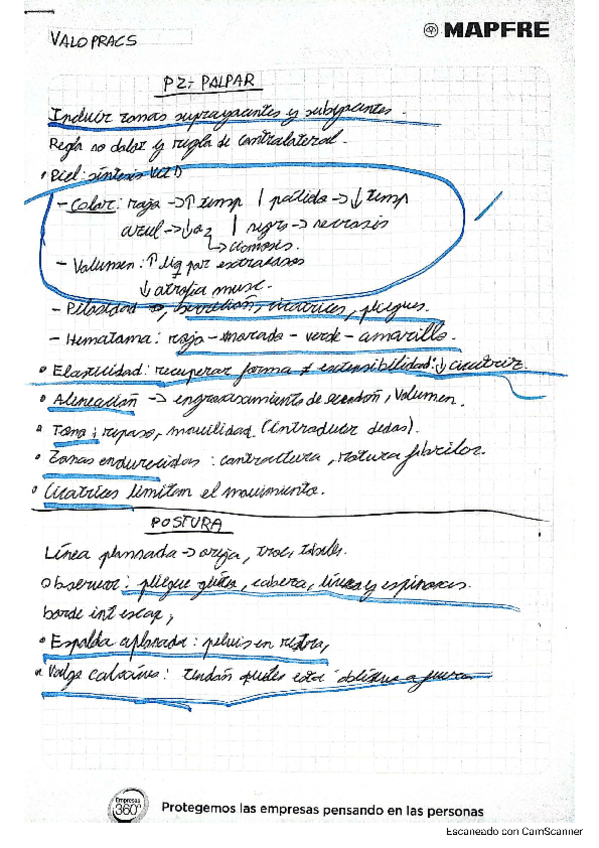 VALOPRACS
MAPFRE
P2:- PALPAR
Incluir zonas suprayacentes y subyacentes.
Regla no dolor y regla de contralateral.
• Piel: síntesis
- Color: roja -> ↑ temp | pálida -> ↓ temp
azul -> ↓ o2 | negro -> necrosis
↳ cianosis.
- Volumen: ↑ liq por extravasos
↓ atrofia musc.
- Pilosidad, cicatrices, pliegues.
- Hematoma: rojo - morado - verde - amarillo.
• Elasticidad: recuperar forma ≠ extensibilidad: ↓ cicatriz.
• Alineación -> engrosamiento de tendón, Volumen.
• Tono: reposo, movilidad. (introducir dedos).
• Zonas endurecidas: contractura, rotura fibrilar.
• Cicatrices limitan el movimiento.
POSTURA
Línea plomada -> oreja, troc,
Observar: pliegue glúteo, cabeza, líneas y espinosas.
borde int escap,
• Espalda aplanada: pelvis en retro,
• Valgo calcáneo: tendón aquiles está a fuera.
Empresas 360°
Protegemos las empresas pensando en las personas
Escaneado con CamScanner